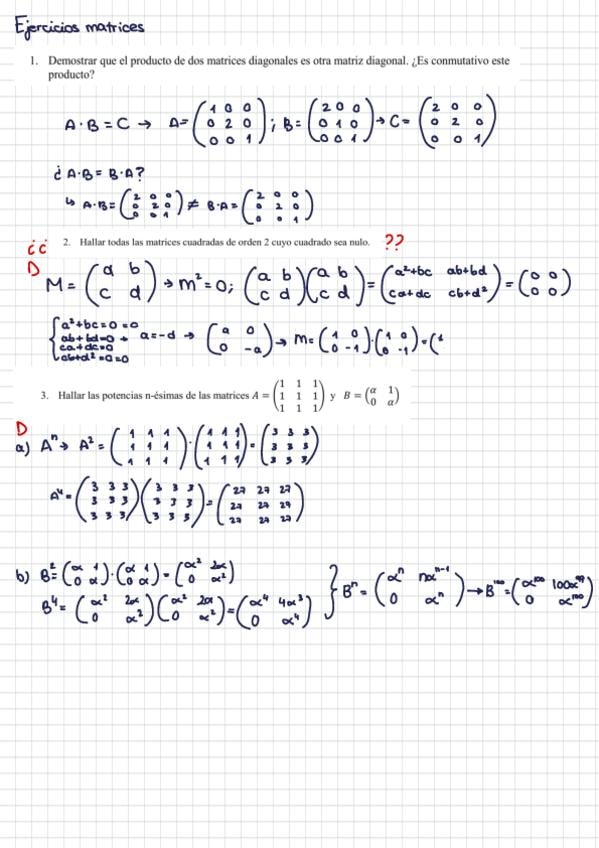 Ejercicios matrices
1. Demostrar que el producto de dos matrices diagonales es otra matriz diagonal. ¿Es conmutativo este
producto?
A · B = C → A = (1 0 0; 0 2 0; 0 0 1) ; B = (2 0 0; 0 1 0; 0 0 1) → C = (2 0 0; 0 2 0; 0 0 1)
¿A·B = B·A?
↳ A·B = (2 0 0; 0 2 0; 0 0 1) ≠ B·A = (2 0 0; 0 2 0; 0 0 1)
¿¿ 2. Hallar todas las matrices cuadradas de orden 2 cuyo cuadrado sea nulo. ??
D M = (a b; c d) → m² = 0; (a b; c d)(a b; c d) = (a²+bc ab+bd; ca+dc cb+d²) = (0 0; 0 0)
{a²+bc=0 =0; ab+bd=0; ca+dc=0; cb+d²=0=0 → a=-d → (a 0; 0 -a) → M = (1 0; 0 -1)·(1 0; 0 -1) = (1
3. Hallar las potencias n-ésimas de las matrices A = (1 1 1; 1 1 1; 1 1 1) y B = (α 1; 0 α)
D
a) Aⁿ → A² = (1 1 1; 1 1 1; 1 1 1)·(1 1 1; 1 1 1; 1 1 1) = (3 3 3; 3 3 3; 3 3 3)
A⁴ = (3 3 3; 3 3 3; 3 3 3)(3 3 3; 3 3 3; 3 3 3) = (27 27 27; 27 27 27; 27 27 27)
b) B² = (α 1; 0 α)·(α 1; 0 α) = (α² 2α; 0 α²)
B⁴ = (α² 2α; 0 α²)(α² 2α; 0 α²) = (α⁴ 4α³; 0 α⁴) } Bⁿ = (αⁿ nαⁿ⁻¹; 0 αⁿ) → B¹⁰⁰ = (α¹⁰⁰ 100α⁹⁹; 0 α¹⁰⁰)